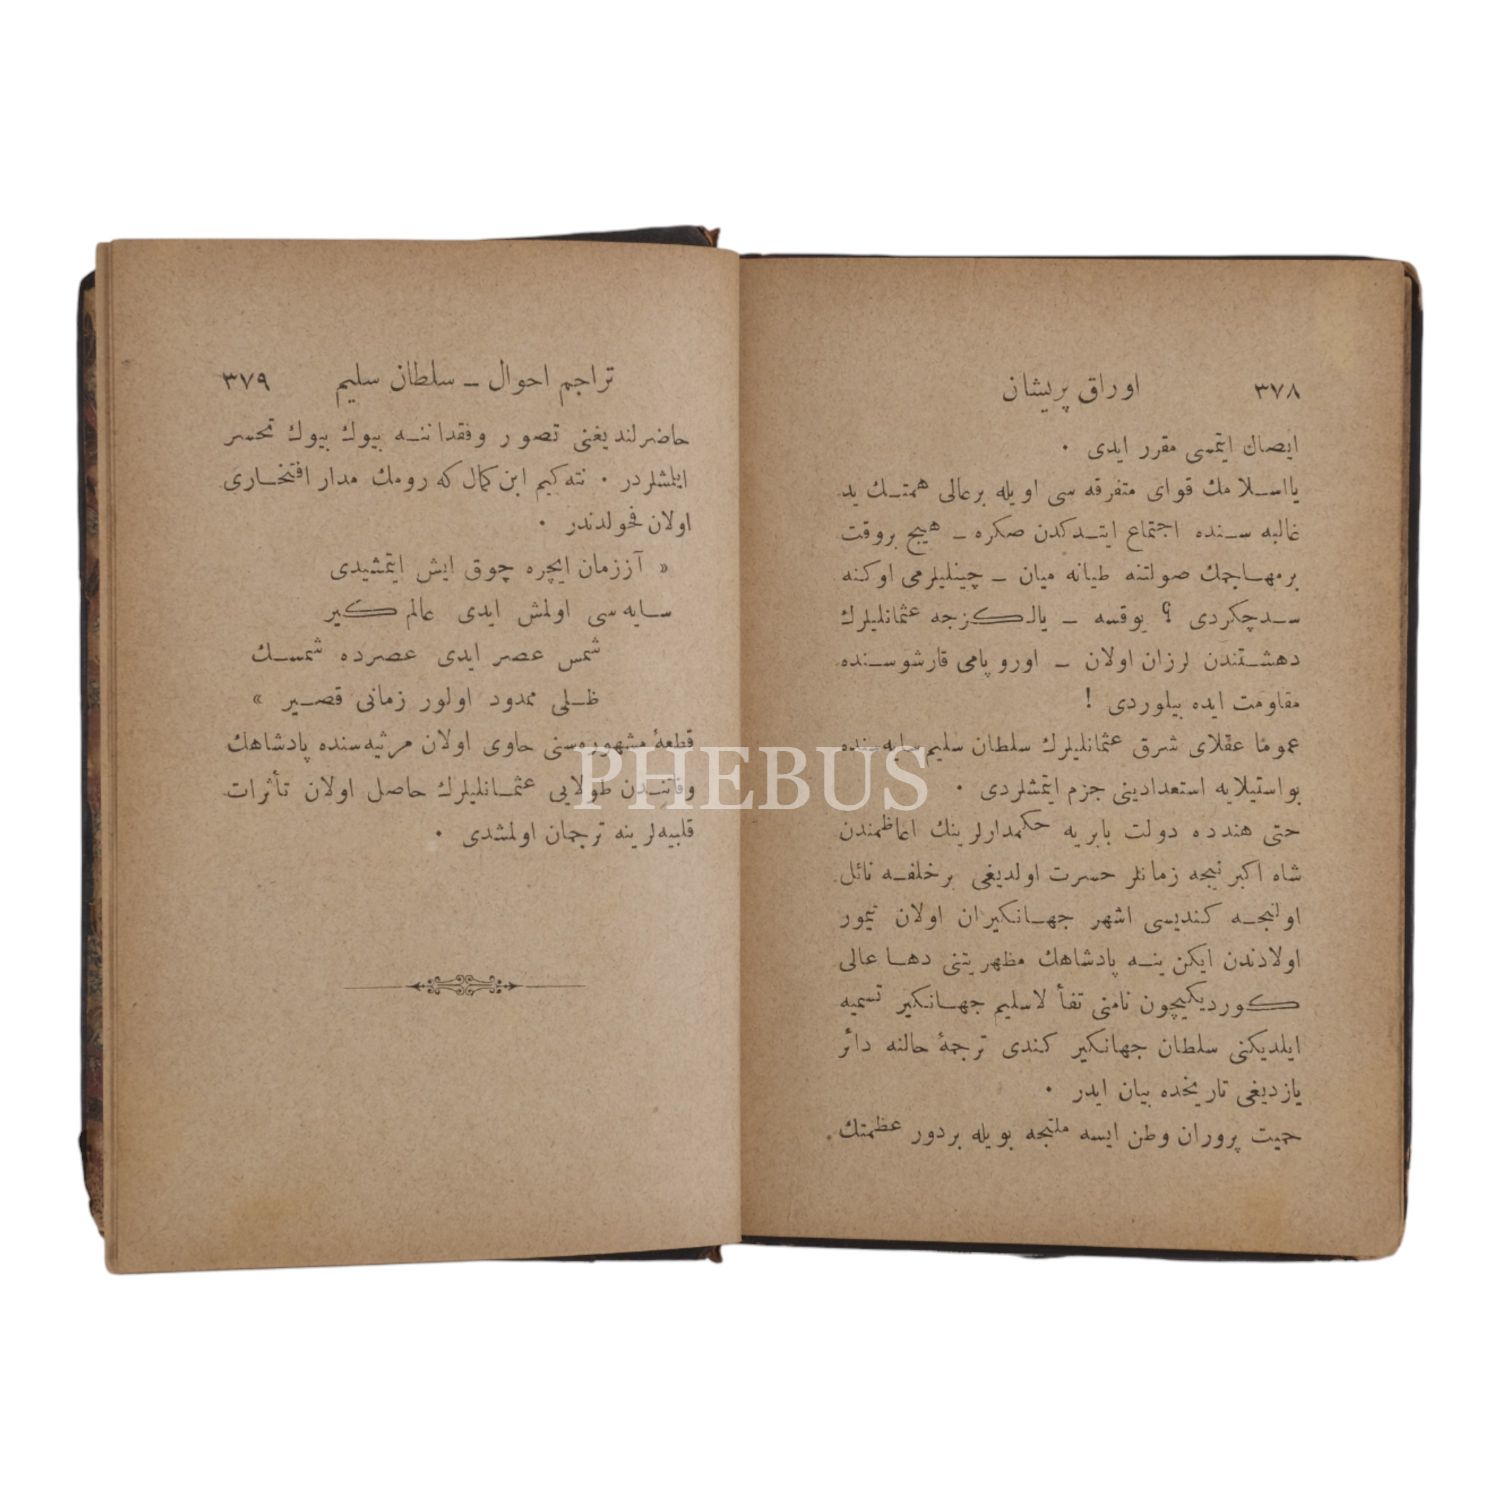 ٣٧٨ اوراق پريشان
ايصال ايتمسى مقرر ايدى ·
يا اسلامك قواى متفرقه سى اويله برعالى همتك يد
غالبه سنده اجتماع ايتدكدن صكره ـ هيچ بروقت
برمهاجمك صولتنه طيانه ميان ـ چينليلرمى اوكنه
سدچكردى ؟ يوقسه ـ يالكزجه عثمانليلرك
دهشتندن لرزان اولان ـ اوروپامى قارشوسنده
مقاومت ايده بيلوردى !
عموما عقلاى شرق عثمانليلرك سلطان سليم سايه سنده
بواستيلايه استعدادينى جزم ايتمشلردى ·
حتى هندده دولت بابريه حكمدارلرينك اعاظمندن
شاه اكبر نيجه زمانلر حسرت اولديغى برخلفه نائل
اولنجه كنديسى اشهر جهانكيران اولان تيمور
اولادندن ايكن ينه پادشاهك مظهريتنى دها عالى
كورديكيچون نامنى تفألا سليم جهانكير تسميه
ايلديكنى سلطان جهانكير كندى ترجمهٔ حالنه دائر
يازديغى تاريخده بيان ايدر ·
حميت پروران وطن ايسه ملتجه بويله بردور عظمتك
تراجم احوال ـ سلطان سليم ٣٧٩
حاضرلنديغنى تصور وفقداننه بيوك بيوك تحسر
ايلمشلردر · نته كيم ابن كمال كه رومك مدار افتخارى
اولان فحولدندر ·
« آززمان ايچره چوق ايش ايتمشيدى
سايه سى اولمش ايدى عالم كير
شمس عصر ايدى عصرده شمسك
ظلى ممدود اولور زمانى قصير »
قطعهٔ مشهوره سنى حاوى اولان مرثيه سنده پادشاهك
وفاتندن طولايى عثمانليلرك حاصل اولان تأثرات
قلبيه لرينه ترجمان اولمشدى ·
PHEBUS